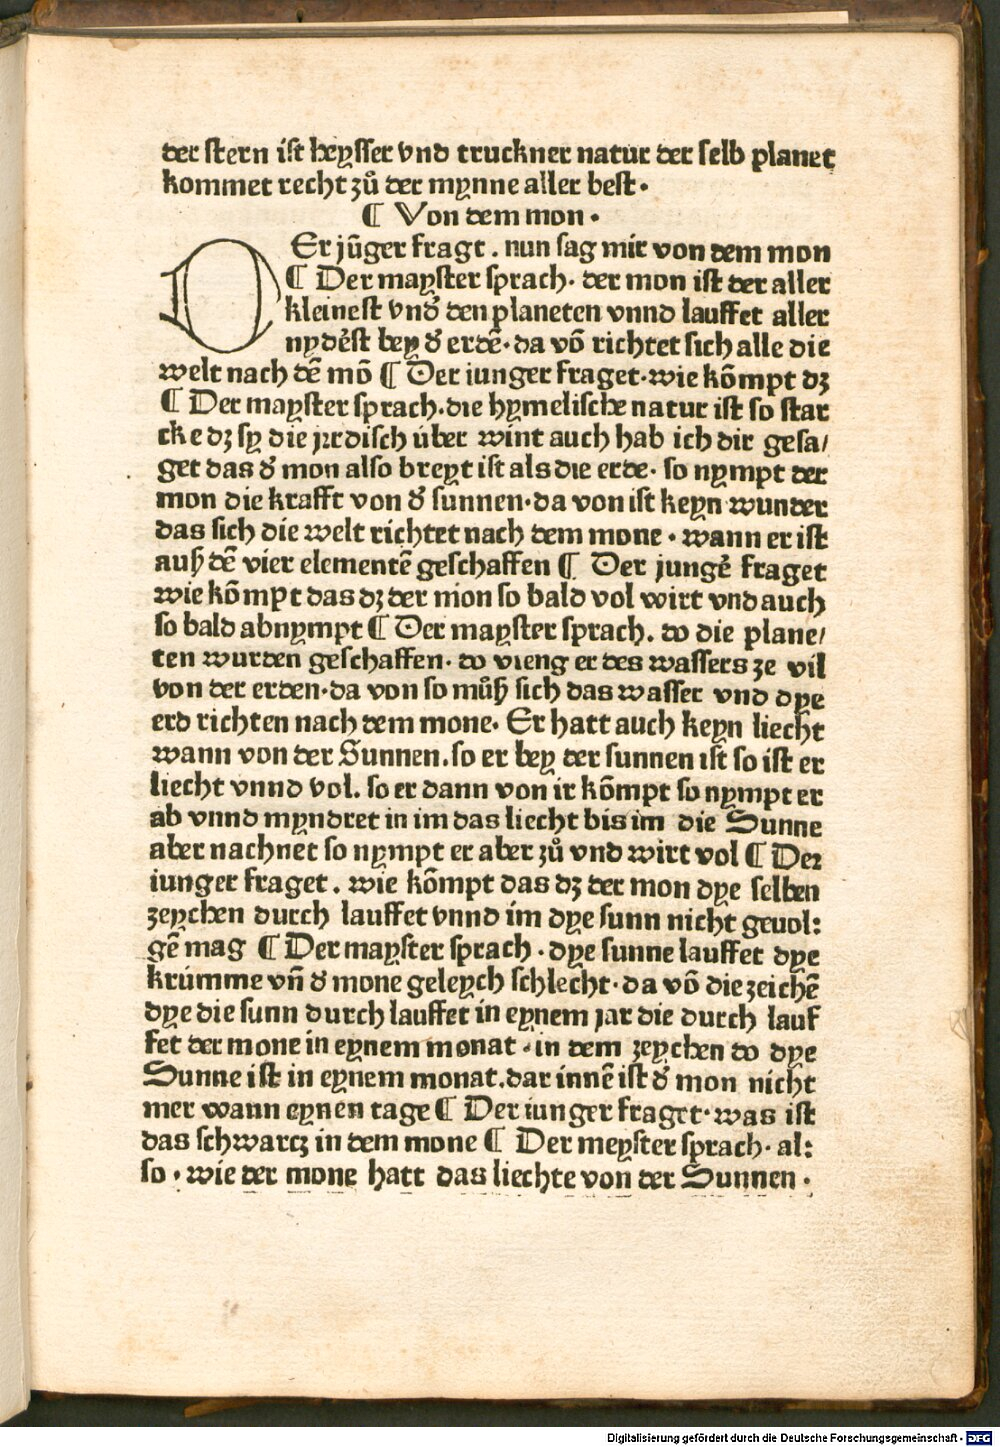 der stern ist heysser vnd truckner natur der selb planet
kommet recht zů der mynne aller best.
¶ Von dem mon.
DEr jũger fragt. nun sag mir von dem mon
¶ Der mayster sprach. der mon ist der aller
kleinest vnđ den planeten vnnd lauffet aller
nydest bey đ erdē. da vō richtet sich alle die
welt nach dē mō ¶ Der iunger fraget. wie kōmpt dz
¶ Der mayster sprach. die hymelische natur ist so star
cke dz sy die jrdisch über wint auch hab ich dir gesa/
get das đ mon also breyt ist als die erde. so nympt der
mon die krafft von đ sunnen. da von ist keyn wunder
das sich die welt richtet nach dem mone. wann er ist
auß dē vier elementē geschaffen ¶ Der junge fraget
wie kōmpt das dz der mon so bald vol wirt vnd auch
so bald abnympt ¶ Der mayster sprach. do die plane/
ten wurden geschaffen. do vieng er des wassers ze vil
von der erden. da von so můß sich das wasser vnd dye
erd richten nach dem mone. Er hatt auch keyn liecht
wann von der Sunnen. so er bey der sunnen ist so ist er
liecht vnnd vol. so er dann von ir kōmpt so nympt er
ab vnnd myndret in im das liecht bis im die Sunne
aber nachnet so nympt er aber zů vnd wirt vol ¶ Der
iunger fraget. wie kōmpt das dz der mon dye selben
zeychen durch lauffet vnnd im dye sunn nicht geuol:
gē mag ¶ Der mayster sprach. dye sunne lauffet dye
krümme vñ đ mone geleych schlecht. da vō die zeichē
dye die sunn durch lauffet in eynem jar die durch lauf
fet der mone in eynem monat. in dem zeychen do dye
Sunne ist in eynem monat. dar innē ist đ mon nicht
mer wann eynen tage ¶ Der iunger fraget. was ist
das schwarcz in dem mone ¶ Der meyster sprach. al:
so. wie der mone hatt das liechte von der Sunnen.
Digitalisierung gefördert durch die Deutsche Forschungsgemeinschaft - DFG